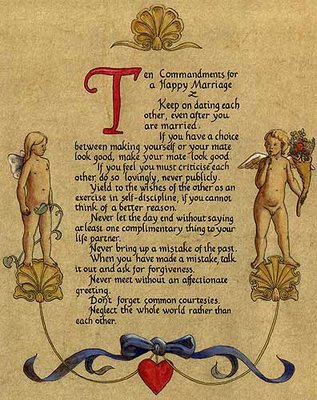 Ten Commandments for
a Happy Marriage
Keep on dating each
other, even after you
are married.
If you have a choice
between making yourself or your mate
look good, make your mate look good.
If you feel you must criticise each
other, do so lovingly, never publicly.
Yield to the wishes of the other as an
exercise in self-discipline, if you cannot
think of a better reason.
Never let the day end without saying
at least one complimentary thing to your
life partner.
Never bring up a mistake of the past.
When you have made a mistake, talk
it out and ask for forgiveness.
Never meet without an affectionate
greeting.
Don't forget common courtesies.
Neglect the whole world rather than
each other.